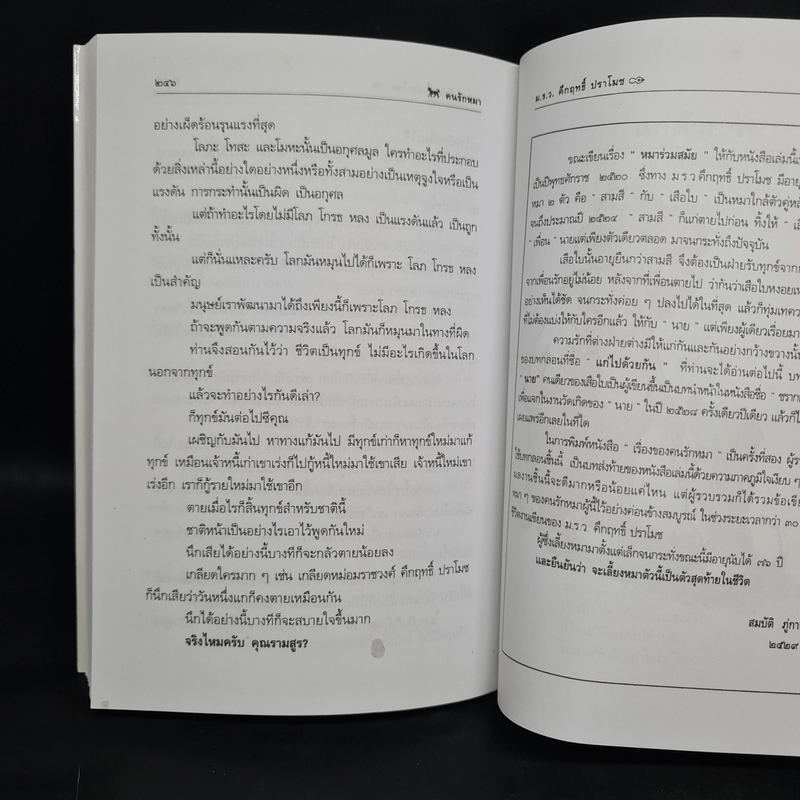 ๒๔๖
คนรักหมา
อย่างเผ็ดร้อนรุนแรงที่สุด
โลภะ โทสะ และโมหะนั้นเป็นอกุศลมูล ใครทำอะไรที่ประกอบ
ด้วยสิ่งเหล่านี้อย่างใดอย่างหนึ่งหรือทั้งสามอย่างเป็นเหตุจูงใจหรือเป็น
แรงดัน การกระทำนั้นเป็นผิด เป็นอกุศล
แต่ถ้าทำอะไรโดยไม่มีโลภ โกรธ หลง เป็นแรงดันแล้ว เป็นถูก
ทั้งนั้น
แต่ก็นั่นแหละครับ โลกมันหมุนไปได้ก็เพราะ โลภ โกรธ หลง
เป็นสำคัญ
มนุษย์เราพัฒนามาได้ถึงเพียงนี้ก็เพราะโลภ โกรธ หลง
ถ้าจะพูดกันตามความจริงแล้ว โลกมันก็หมุนมาในทางที่ผิด
ท่านจึงสอนกันไว้ว่า ชีวิตเป็นทุกข์ ไม่มีอะไรเกิดขึ้นในโลก
นอกจากทุกข์
แล้วจะทำอย่างไรกันดีเล่า?
ก็ทุกข์มันต่อไปซีคุณ
เผชิญกับมันไป หาทางแก้มันไป มีทุกข์เก่าก็หาทุกข์ใหม่มาแก้
ทุกข์ เหมือนเจ้าหนี้เก่าเขาเร่งก็ไปกู้หนี้ใหม่มาใช้เขาเสีย เจ้าหนี้ใหม่เขา
เร่งอีก เราก็กู้รายใหม่มาใช้เขาอีก
ตายเมื่อไรก็สิ้นทุกข์สำหรับชาตินี้
ชาติหน้าเป็นอย่างไรเอาไว้พูดกันใหม่
นึกเสียได้อย่างนี้บางทีก็จะกลัวตายน้อยลง
เกลียดใครมาก ๆ เช่น เกลียดหม่อมราชวงศ์ คึกฤทธิ์ ปราโมช
ก็นึกเสียว่าวันหนึ่งแกก็คงตายเหมือนกัน
นึกได้อย่างนี้บางทีก็จะสบายใจขึ้นมาก
จริงไหมครับ คุณรามสูร?
ม.ร.ว. คึกฤทธิ์ ปราโมช
ขณะเขียนเรื่อง " หมาร่วมสมัย " ให้กับหนังสือเล่มนี้
เป็นปีพุทธศักราช ๒๕๒๐ ซึ่งทาง ม.ร.ว คึกฤทธิ์ ปราโมช มีอายุ
หมา ๒ ตัว คือ " สามสี " กับ " เสือใบ " เป็นหมาใกล้ตัว
จนถึงประมาณปี ๒๕๒๔ " สามสี " ก็แก่ตายไปก่อน ทิ้งให้
" เพื่อน " นายแต่เพียงตัวเดียวตลอด มาจนกระทั่งถึงปัจจุบัน
เสือใบนั้นอายุยืนกว่าสามสี จึงต้องเป็นฝ่ายรับทุกข์จาก
จากเพื่อนรักอยู่ไม่น้อย หลังจากที่เพื่อนตายไป ว่ากันว่าเสือใบหงอย
อย่างเห็นได้ชัด จนกระทั่งค่อย ๆ ปลงไปได้ในที่สุด แล้วก็ทุ่มเท
ที่ไม่ต้องแบ่งให้กับใครอีกแล้ว ให้กับ " นาย " แต่เพียงผู้เดียวเรื่อยมา
ความรักที่ต่างฝ่ายต่างมีให้แก่กันและกันอย่างกว้างขวางนั้น
ของบทกลอนที่ชื่อ " แก่ไปด้วยกัน " ที่ท่านจะได้อ่านต่อไปนี้
" นาย" คนเดียวของเสือใบเป็นผู้เขียนขึ้นเป็นบทนำหน้าในหนังสือชื่อ
เพื่อแจกในงานวันเกิดของ " นาย " ในปี ๒๕๒๘ ครั้งเดียวปีเดียว แล้วก็
เผยแพร่อีกเลยในที่ใด
ในการพิมพ์หนังสือ " เรื่องของคนรักหมา " เป็นครั้งที่สอง
ใช้บทกลอนชิ้นนี้ เป็นบทส่งท้ายของหนังสือเล่มนี้ด้วยความภาคภูมิใจเงียบ ๆ
ผลงานชิ้นนี้จะดีมากหรือน้อยแค่ไหน แต่ผู้รวบรวมก็ได้รวมข้อเขียน
หมา ๆ ของคนรักหมาผู้นี้ไว้อย่างค่อนข้างสมบูรณ์ ในช่วงระยะเวลากว่า ๓๐
ชีวิตงานเขียนของ ม.ร.ว. คึกฤทธิ์ ปราโมช
ผู้ซึ่งเลี้ยงหมามาตั้งแต่เล็กจนกระทั่งขณะนี้มีอายุนับได้ ๗๖ ปี
และยืนยันว่า จะเลี้ยงหมาตัวนี้เป็นตัวสุดท้ายในชีวิต
สมบัติ
๒๕๒๙